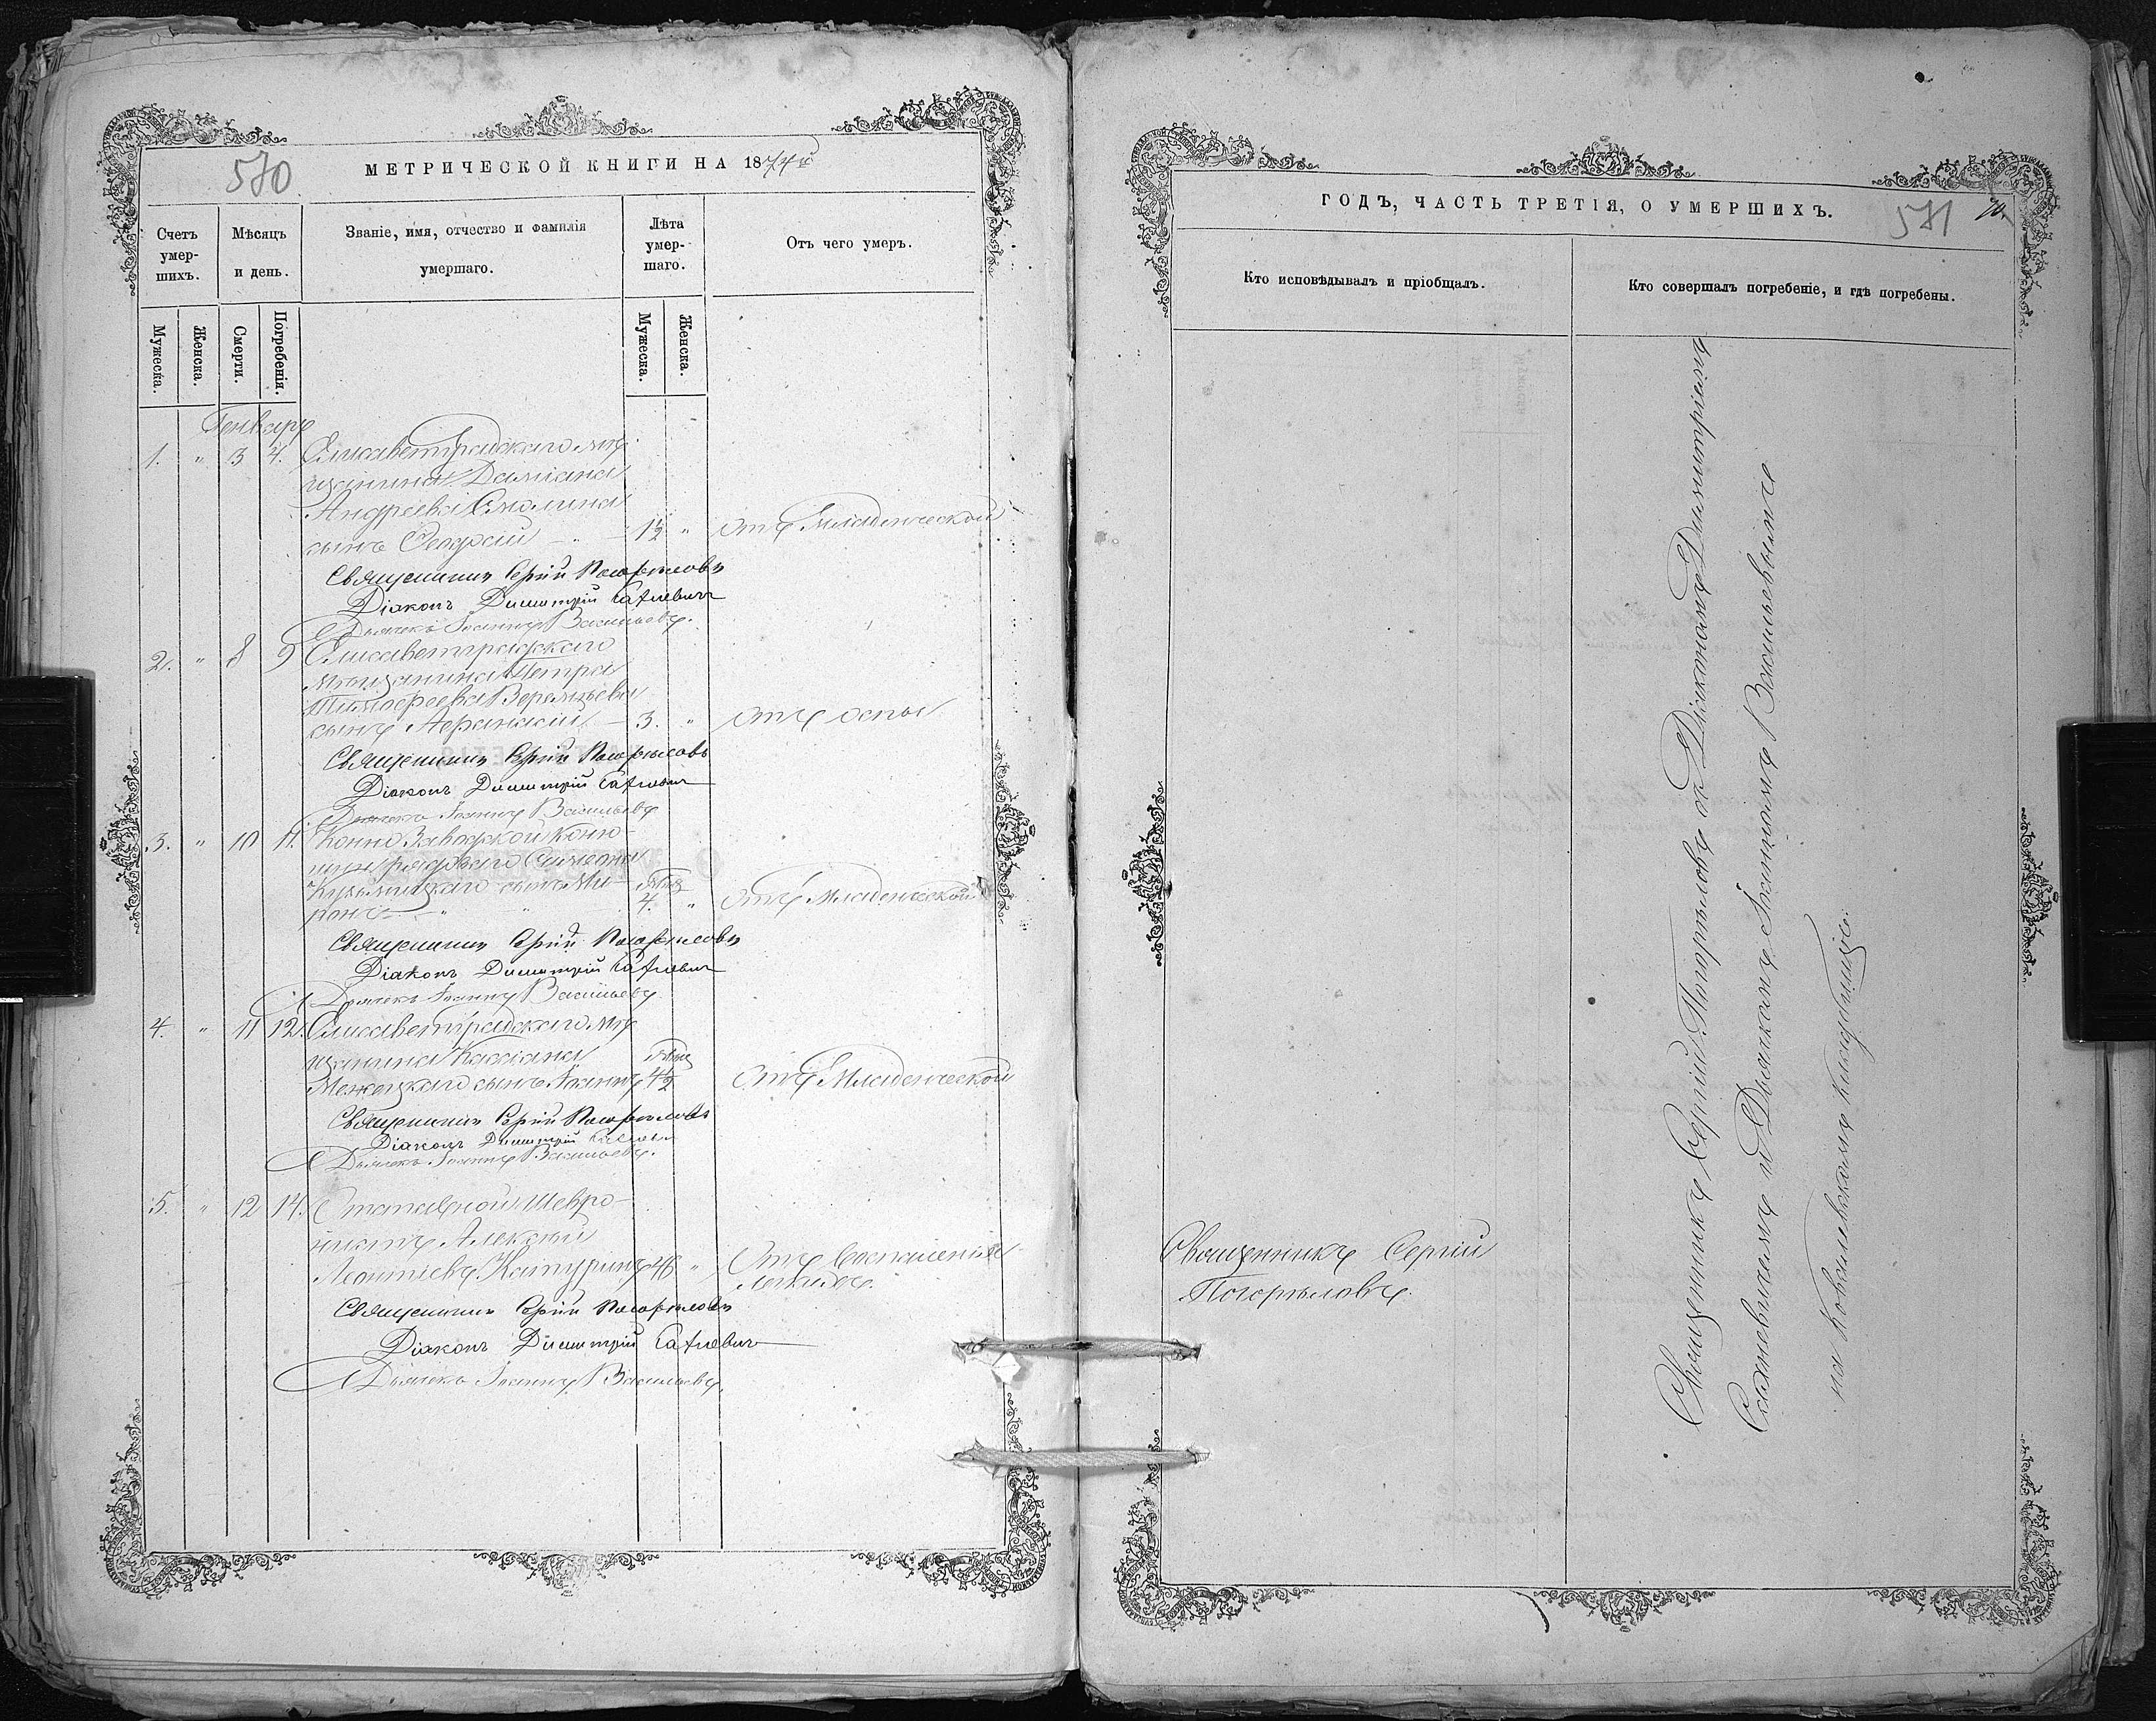 570
МЕТРИЧЕСКОЙ КНИГИ НА 1874й
Счетъ умер-шихъ.
Мѣсяцъ и день.
Званіе, имя, отчество и фамилія умершаго.
Лѣта умер-шаго.
Отъ чего умеръ.
Мужеска.
Женска.
Смерти.
Погребенія.
Мужеска.
Женска.
Генварь
1. " 3 4. Елисаветградскаго мѣ
щанина Даміана
Андреева Смолина
сынъ - " - 1½ " Отъ Младенческой
Священникъ Сергій Погорѣловъ
Діаконъ Димитрій
Дьячекъ Іоаннъ Васильевъ.
2. " 8 9 Елисаветградскаго
Мѣщанина Петра
Тимофеева
сынъ - 3. " Отъ оспы
Священникъ Сергій Погорѣловъ
Діаконъ Димитрій
Дьячекъ Іоаннъ Васильевъ
3. " 10 11. Конно Заводской Коню-
шни рядоваго Симеона
сынъ Ми- Мѣс
ронъ - " 4. " Отъ Младенческой
Священникъ Сергій Погорѣловъ
Діаконъ Димитрій
Дьячекъ Іоаннъ Васильевъ
4. " 11 12. Елисаветградскаго мѣ
щанина Кассіана Мѣс
сынъ Іоаннъ 4½ Отъ Младенческой
Священникъ Сергій Погорѣловъ
Діаконъ Димитрій
Дьячекъ Іоаннъ Васильевъ.
5. " 12 14. Отставной Шевро-
нистъ Алексій
Леонтіевъ 46 " Отъ Воспаленія
легкихъ.
Священникъ Сергій Погорѣловъ
Діаконъ Димитрій
Дьячекъ Іоаннъ Васильевъ.
ГОДЪ, ЧАСТЬ ТРЕТІЯ, О УМЕРШИХЪ.
571
70.
Кто исповѣдывалъ и пріобщалъ.
Кто совершалъ погребеніе, и гдѣ погребены.
Священникъ Сергій
Погорѣловъ.
Священникъ Сергій Погорѣловъ съ Діакономъ Димитріемъ
и Дьячкомъ Іоанномъ Васильевымъ
на Ковалевскомъ кладбищѣ.